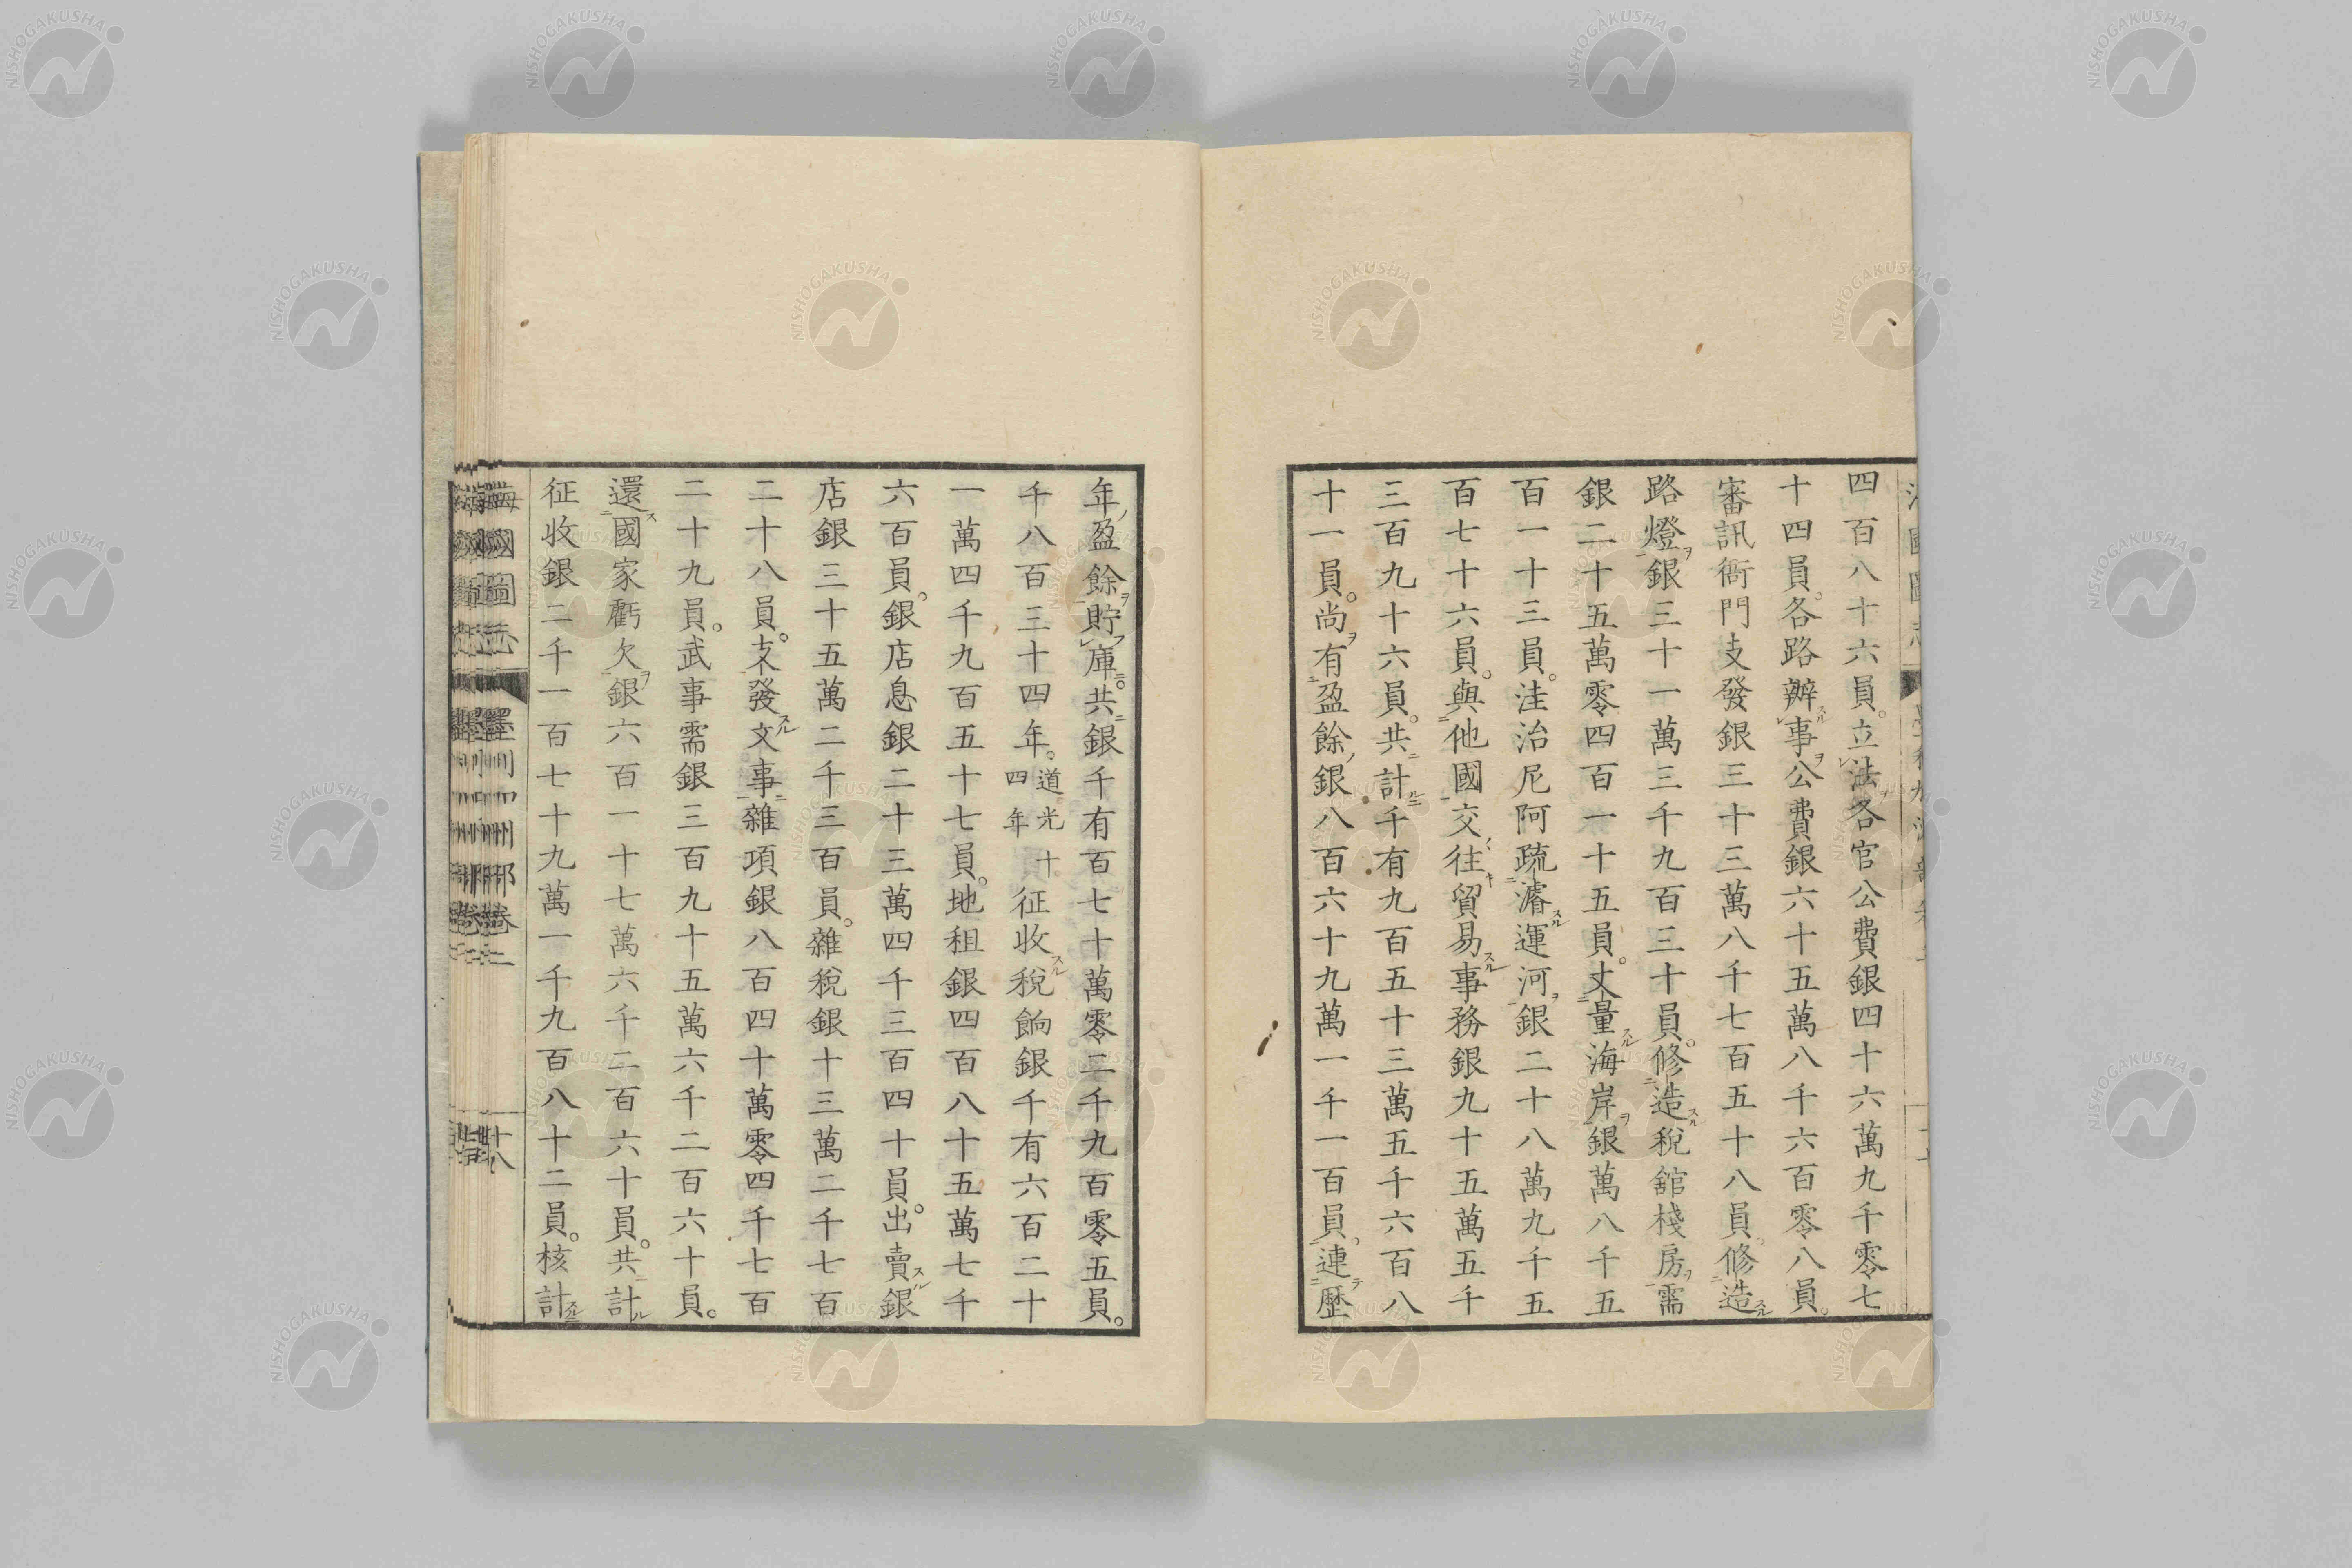 四百八十六員。立法各官公費銀四十六萬九千零七
十四員。各路辦事公費銀六十五萬八千六百零八員。
審訊衙門支發銀三十三萬八千七百五十八員。修造
路燈銀三十一萬三千九百三十員。修造稅舘棧房需
銀二十五萬零四百一十五員。丈量海岸銀萬八千五
百一十三員。洼治尼阿疏濬運河銀二十八萬九千五
百七十六員。與他國交往貿易事務銀九十五萬五千
三百九十六員。共計千有九百五十三萬五千六百八
十一員。尚有盈餘銀八百六十九萬一千一百員。連歷
年盈餘貯庫。共銀千有百七十萬零二千九百零五員。
千八百三十四年。道光十四年征收稅餉銀千有六百二十
一萬四千九百五十七員。地租銀四百八十五萬七千
六百員。銀店息銀二十三萬四千三百四十員。出賣銀
店銀三十五萬二千三百員。雜稅銀十三萬二千七百
二十八員。支發文事雜項銀八百四十萬零四千七百
二十九員。武事需銀三百九十五萬六千二百六十員。
還國家虧欠銀六百一十七萬六千二百六十員。共計
征收銀二千一百七十九萬一千九百八十二員。核計
海國圖志 墨利加洲部 卷二 十八
NISHOGAKUSHA